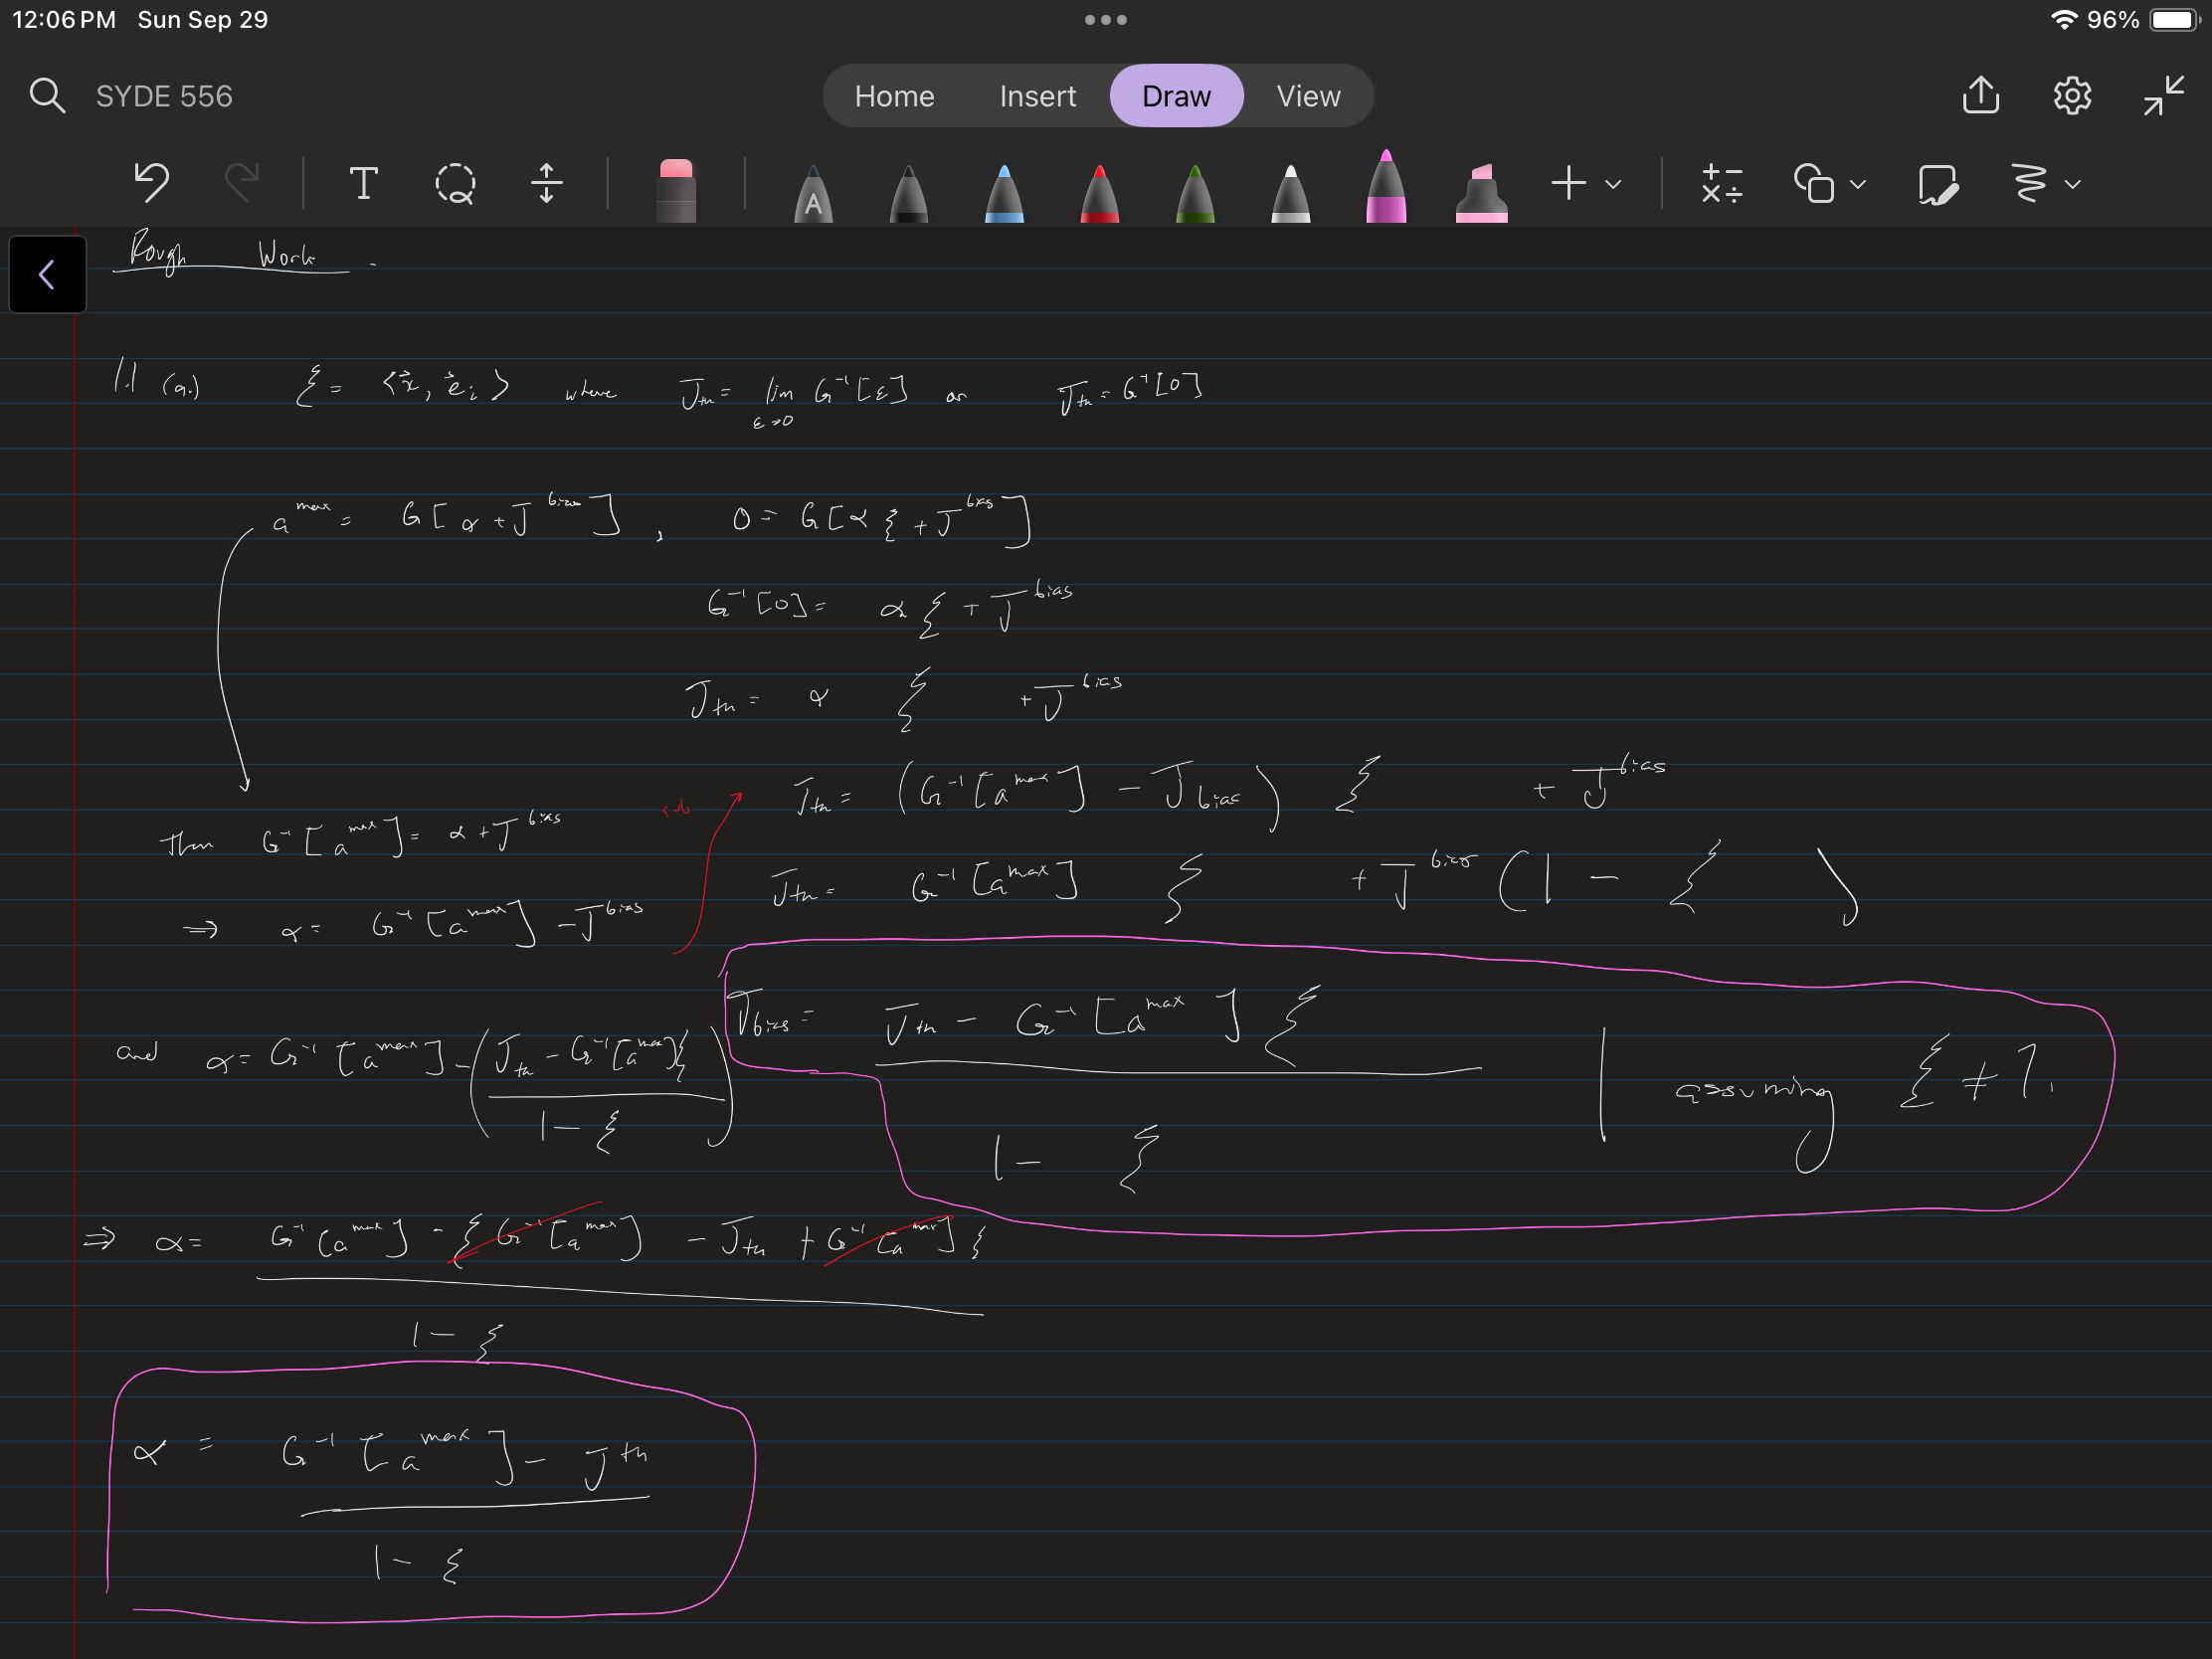 12:06 PM Sun Sep 29 96%
SYDE 556 Home Insert Draw View
T A
Rough Work .
1.1 (a.) ξ = ⟨x⃗, e⃗ᵢ⟩ where J_th = lim_{ε→0} G⁻¹[ε] or J_th = G⁻¹[0]
a^max = G[α + J^bias] , 0 = G[α ξ + J^bias]
G⁻¹[0] = α ξ + J^bias
J_th = α ξ + J^bias
sub J_th = (G⁻¹[a^max] − J_bias) ξ + J^bias
Then G⁻¹[a^max] = α + J^bias
J_th = G⁻¹[a^max] ξ + J^bias (1 − ξ)
⇒ α = G⁻¹[a^max] − J^bias
J_bias = (J_th − G⁻¹[a^max] ξ) / (1 − ξ) | assuming ξ ≠ 1.
and α = G⁻¹[a^max] − ((J_th − G⁻¹[a^max]ξ) / (1 − ξ))
⇒ α = (G⁻¹[a^max] − ξ G⁻¹[a^max] − J_th + G⁻¹[a^max] ξ) / (1 − ξ)
α = (G⁻¹[a^max] − J^th) / (1 − ξ)